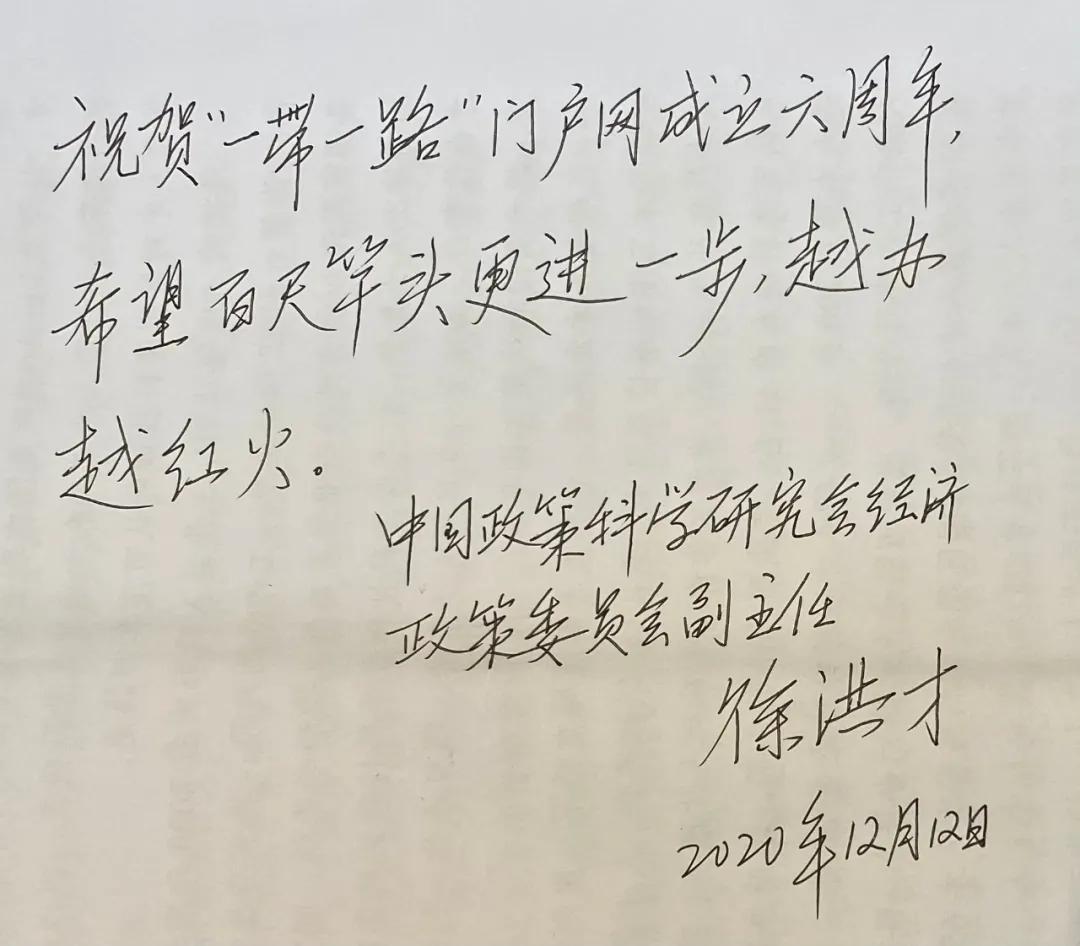 祝贺“一带一路”门户网成立六周年，
希望百尺竿头更进一步，越办
越红火。
中国政策科学研究会经济
政策委员会副主任
徐洪才
2020年12月12日